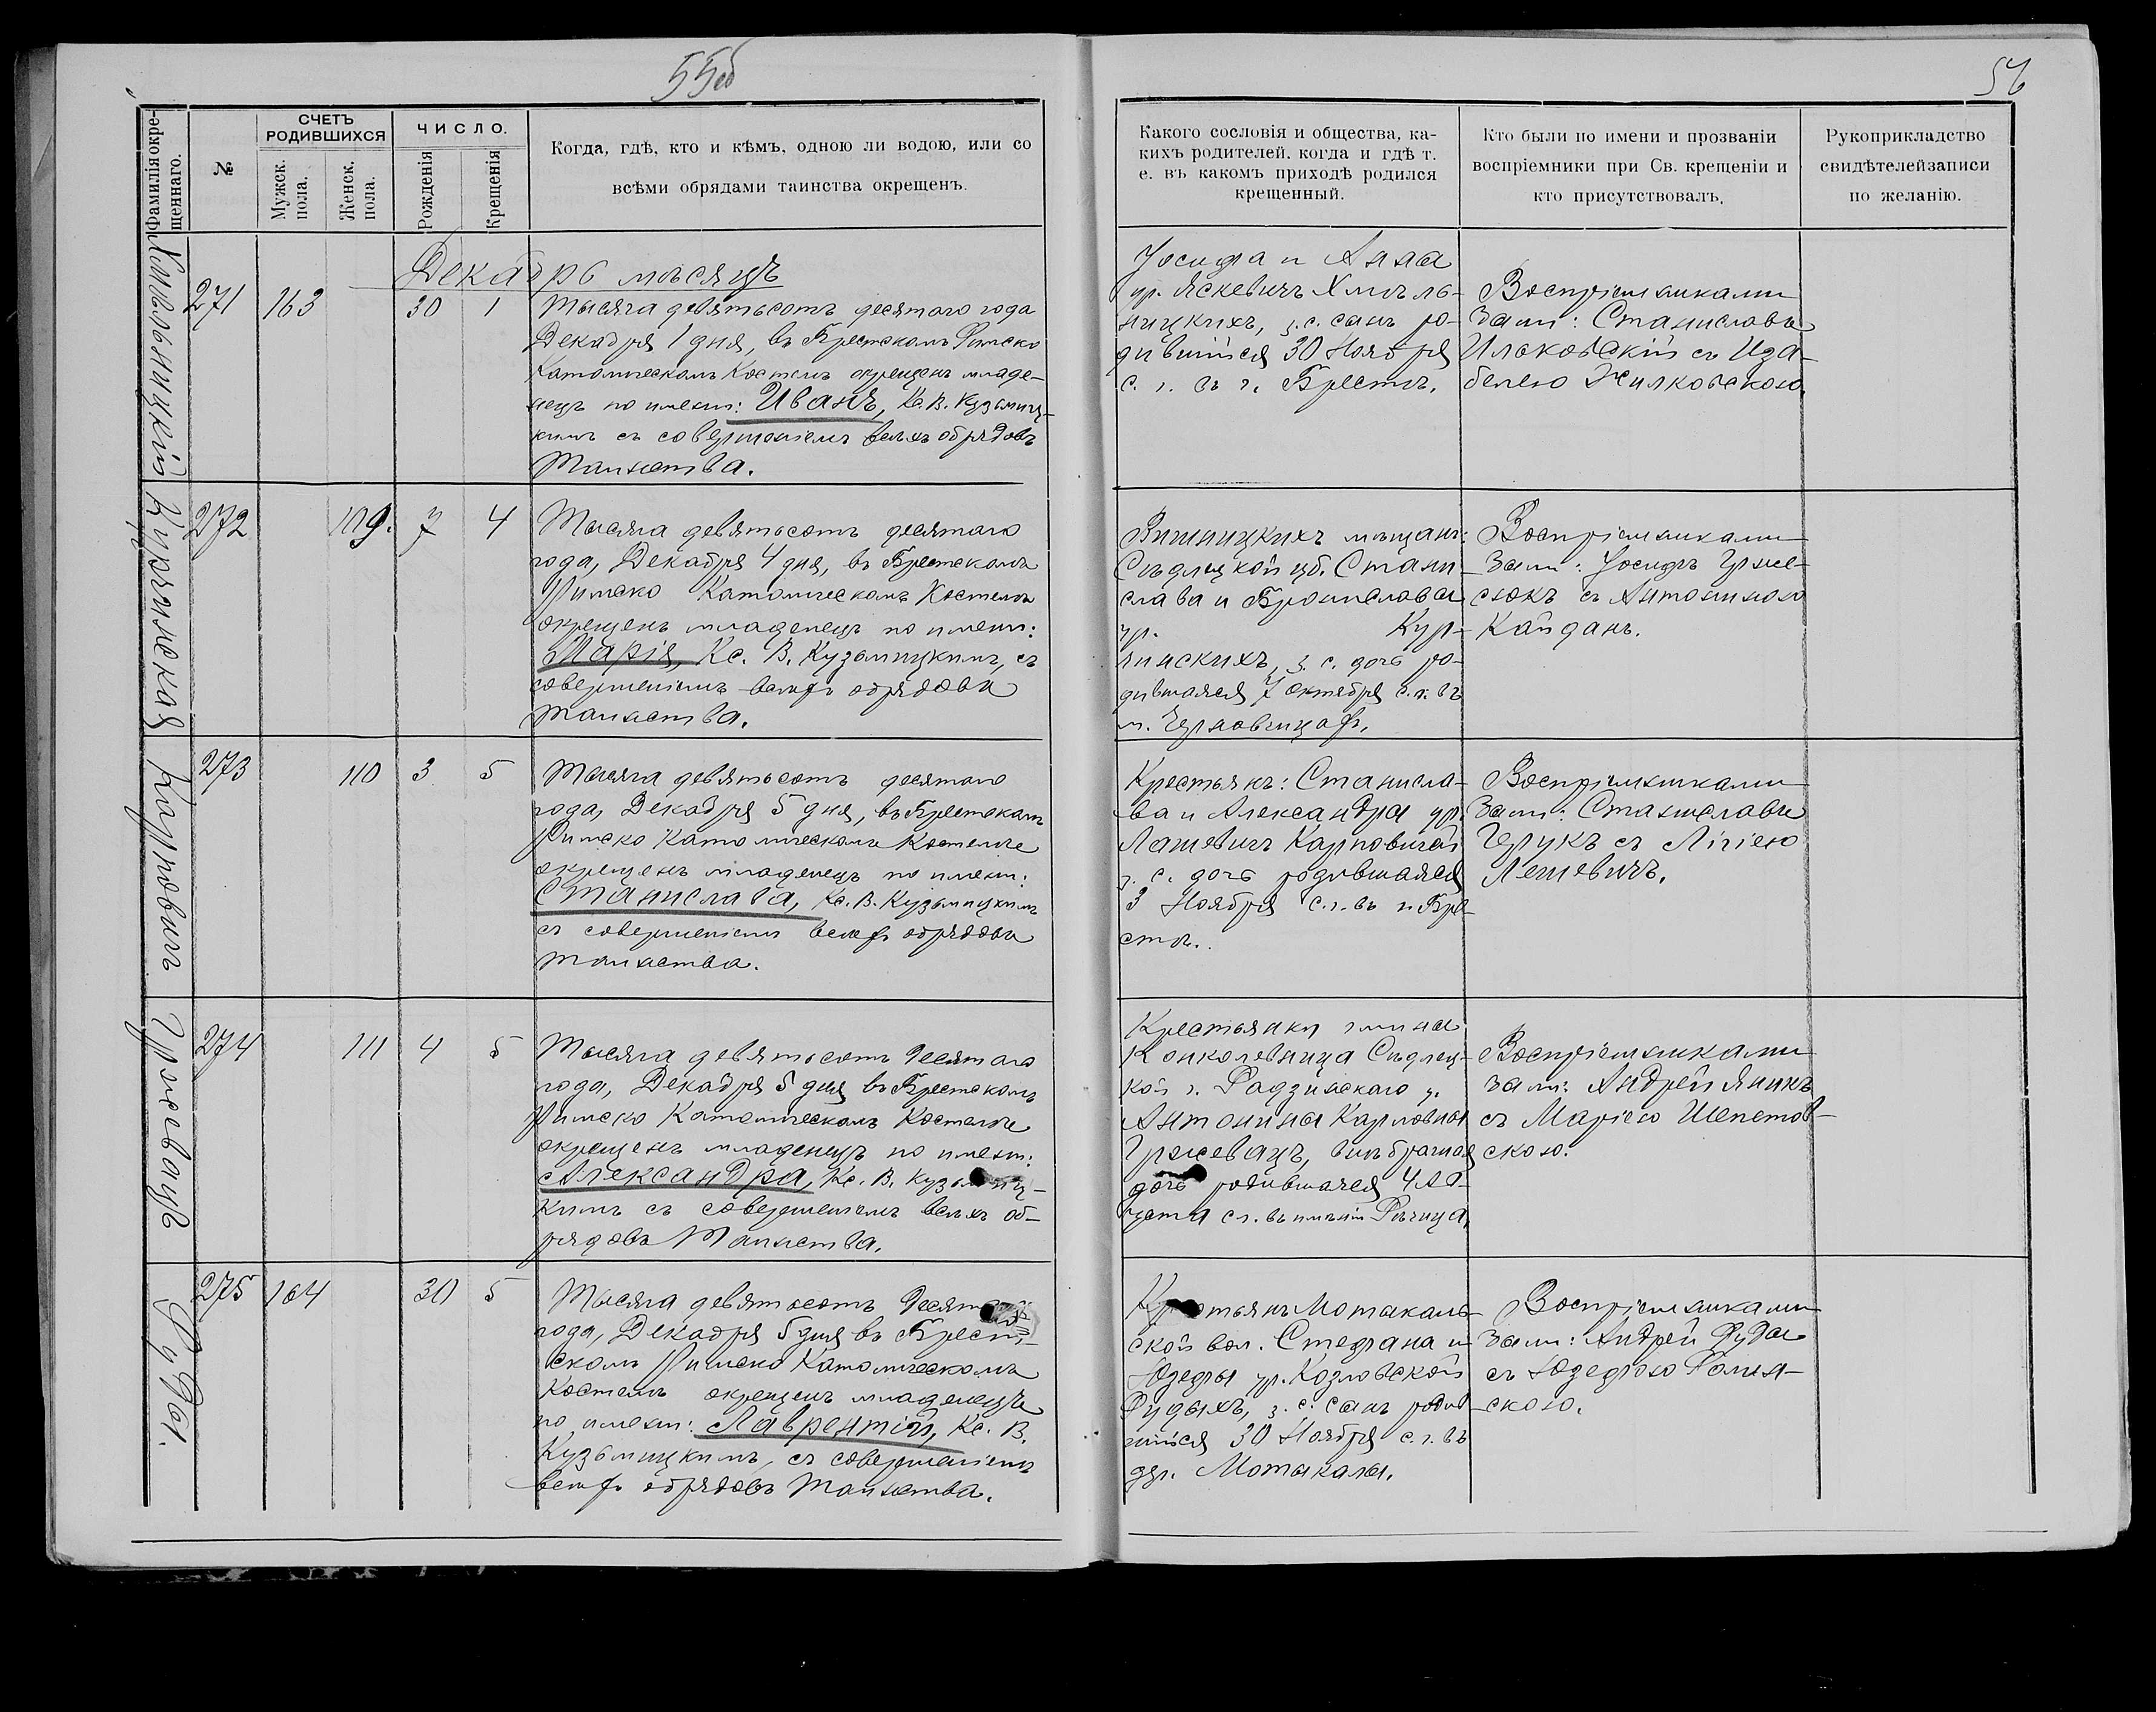 55об
56
Фамилія окре-
щеннаго.
№
СЧЕТЪ
РОДИВШИХСЯ
Мужск.
пола.
Женск.
пола.
ЧИСЛО.
Рожденія
Крещенія
Когда, гдѣ, кто и кѣмъ, одною ли водою, или со
всѣми обрядами таинства окрещенъ.
Какого сословія и общества, ка-
кихъ родителей, когда и гдѣ т.
е. въ какомъ приходѣ родился
крещенный.
Кто были по имени и прозваніи
воспріемники при Св. крещеніи и
кто присутствовалъ,
Рукоприкладство
свидѣтелейзаписи
по желанію.
Декабрь мѣсяцъ
Хмѣльницкій
271 163 30 1
Тысяча девятьсотъ десятаго года
Декабря 1 дня, въ Брестскомъ Римско
Католическомъ Костелѣ окрещенъ младе-
нецъ по имени: Иванъ, Кс. В. Кузьмиц-
кимъ съ совершеніемъ всѣхъ обрядовъ
Таинства.
Іосифа и Анны
ур. Яскевичъ Хмѣль-
ницкихъ, з. с. сынъ ро-
дившійся 30 Ноября
с. г. въ г. Брестѣ.
Воспріемниками
были: Станиславъ
Ильковскій съ Иза-
белею Жилковскою.
Курянская
272 109. 7 4
Тысяча девятьсотъ десятаго
года, Декабря 4 дня, въ Брестскомъ
Римско Католическомъ Костелѣ
окрещенъ младенецъ по имени:
Марія, Кс. В. Кузьмицкимъ, съ
совершеніемъ всѣхъ обрядовъ
таинства.
Вишницкихъ мѣщанъ:
Сѣдлецкой губ. Стани-
слава и Брониславы
ур. Кур-
янскихъ, з. с. дочь ро-
дившаяся 7 октября с. г. въ
м. Чернавчицахъ.
Воспріемниками
были: Іосифъ Грже-
сюкъ съ Антониною
Кайданъ.
Карповичъ
273 110 3 5
Тысяча девятьсотъ десятаго
года, Декабря 5 дня, въ Брестскомъ
Римско Католическомъ Костелѣ
окрещенъ младенецъ по имени:
Станислава, Кс. В. Кузьмицкимъ
съ совершеніемъ всѣхъ обрядовъ
таинства.
Крестьянъ: Станисла-
ва и Александры ур.
Лашевичъ Карповичей
з. с. дочь родившаяся
3 Ноября с. г. въ г. Бре-
стѣ.
Воспріемниками
были: Станиславъ
Герукъ съ Лігіею
Лешевичъ.
Гржевацъ
274 111 4 5
Тысяча девятьсотъ десятаго
года, Декабря 5 дня въ Брестскомъ
Римско Католическомъ Костелѣ
окрещенъ младенецъ по имени:
Александра, Кс. В. Кузьмиц-
кимъ съ совершеніемъ всѣхъ об-
рядовъ Таинства.
Крестьянки гмины
Конколевница Сѣдлец-
кой г. Радзинскаго у.
Антонины Карловны
Гржевацъ, внѣбрачная
дочь родившаяся 4 Ав-
густа с. г. въ имѣніи Рѣчица,
Воспріемниками
были: Андрей Яникъ
съ Маріею Шепетов-
скою.
Руды.
275 164 30 5
Тысяча девятьсотъ десятаго
года, Декабря 5 дня въ Брест-
скомъ Римско Католическомъ
Костелѣ окрещенъ младенецъ
по имени: Лаврентій, Кс. В.
Кузьмицкимъ, съ совершеніемъ
всѣхъ обрядовъ Таинства.
Крестьянъ Мотыкаль-
ской вол. Стефана и
Юзефы ур. Козловской
Рудыхъ, з. с. сынъ родив-
шійся 30 Ноября с. г. въ
дер. Мотыкалы.
Воспріемниками
были: Андрей Руды
съ Юзефою Роман-
скою.